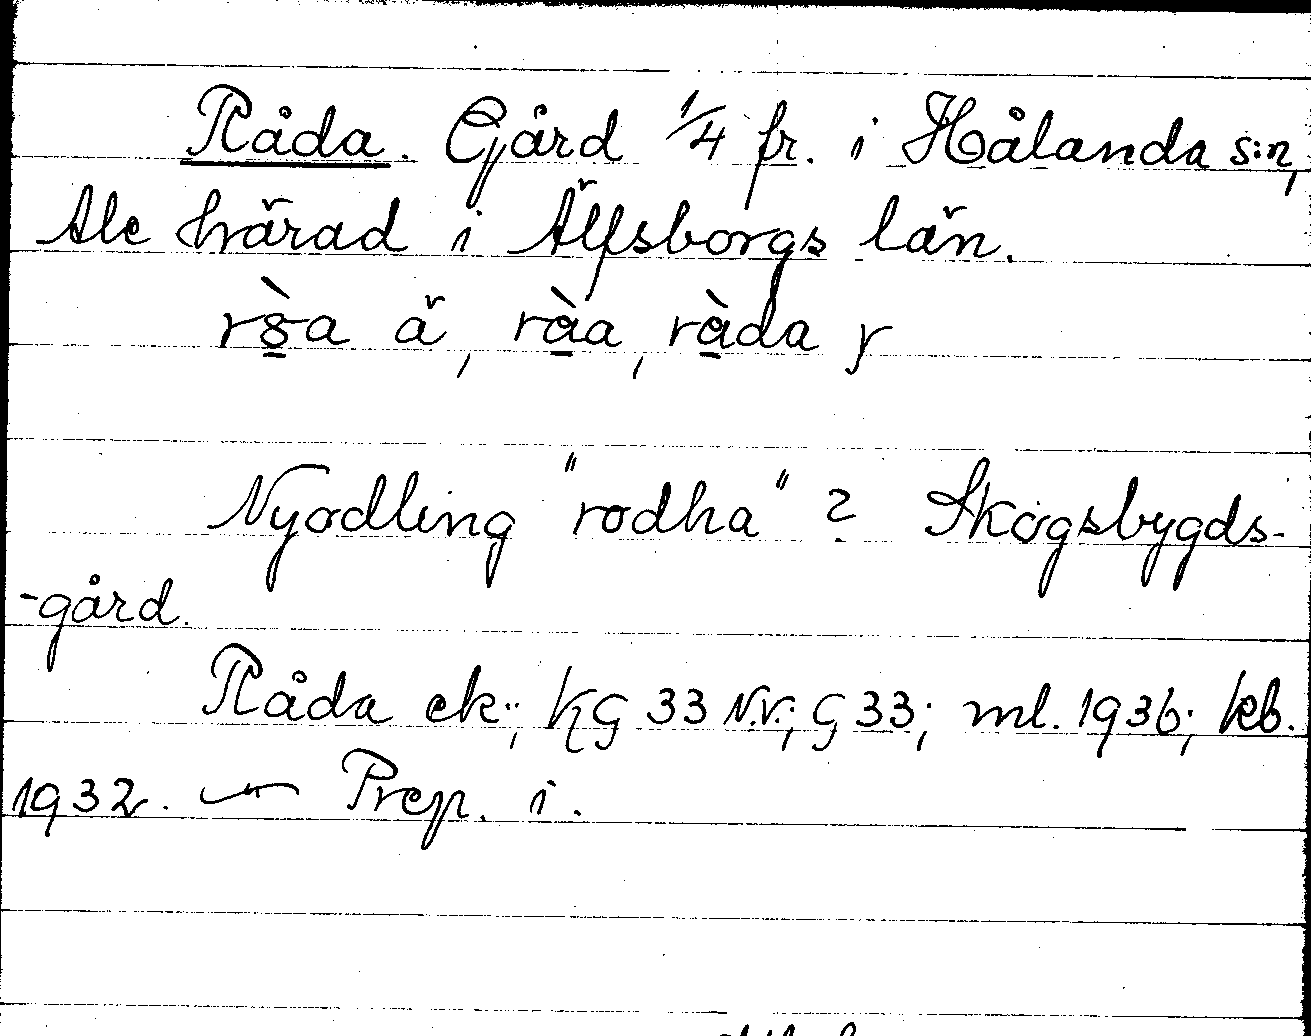 Råda. Gård 1/4 fr. i Hålanda s:n,
Ale härad i Älfsborgs län.
ä, ràa, ràda y
Nyodling "rodha"? Skogsbygds-
-gård.
Råda ek.; KG 33 N.V.; G 33; ml. 1936; kb.
1932. — Prep. i.